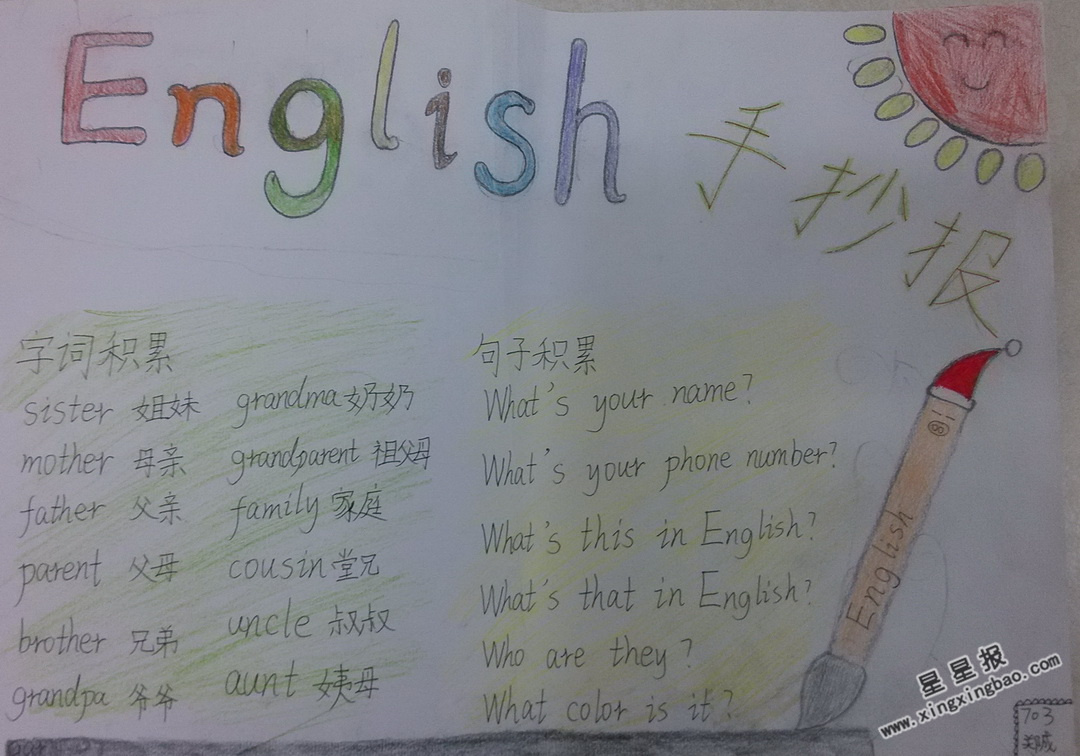 English
手抄报
字词积累
sister 姐妹 grandma 奶奶
mother 母亲 grandparent 祖父母
father 父亲 family 家庭
parent 父母 cousin 堂兄
brother 兄弟 uncle 叔叔
grandpa 爷爷 aunt 姨母
句子积累
What's your name?
What's your phone number?
What's this in English?
What's that in English?
Who are they?
What color is it?
English
星星报
www.xingxingbao.com
703